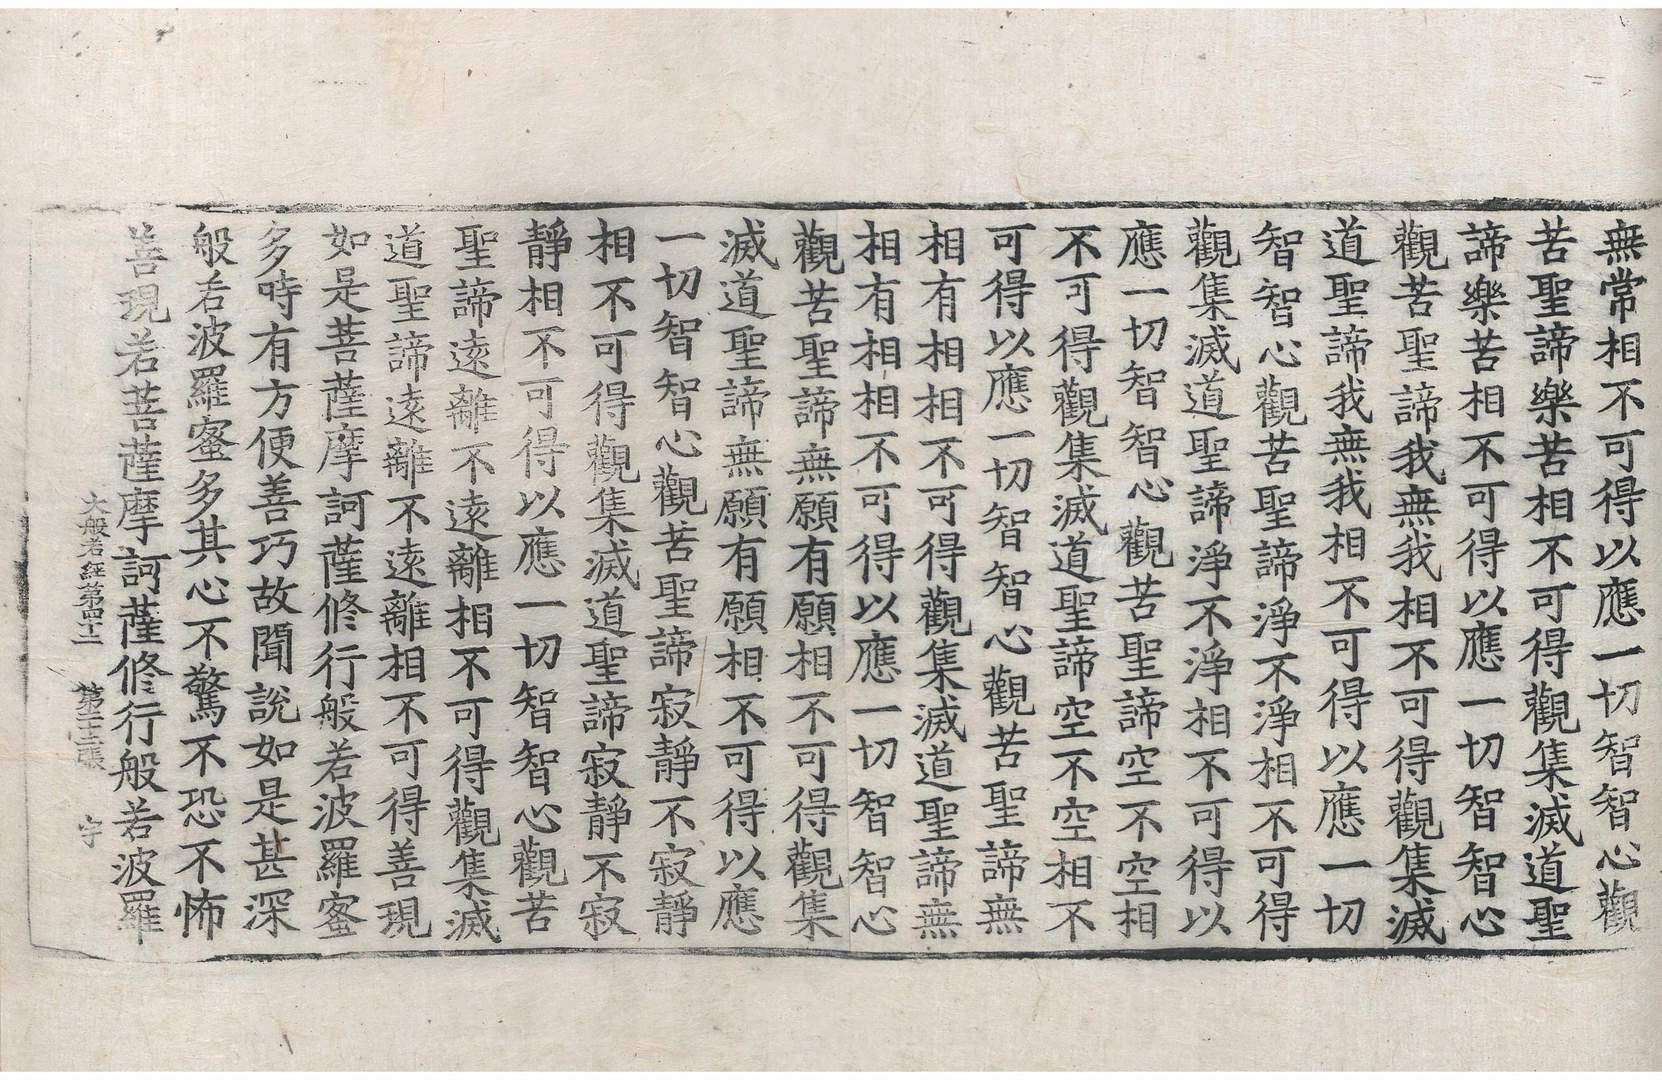 無常相不可得以應一切智智心觀
苦聖諦樂苦相不可得觀集滅道聖
諦樂苦相不可得以應一切智智心
觀苦聖諦我無我相不可得觀集滅
道聖諦我無我相不可得以應一切
智智心觀苦聖諦淨不淨相不可得
觀集滅道聖諦淨不淨相不可得以
應一切智智心觀苦聖諦空不空相
不可得觀集滅道聖諦空不空相不
可得以應一切智智心觀苦聖諦無
相有相相不可得觀集滅道聖諦無
相有相相不可得以應一切智智心
觀苦聖諦無願有願相不可得觀集
滅道聖諦無願有願相不可得以應
一切智智心觀苦聖諦寂靜不寂靜
相不可得觀集滅道聖諦寂靜不寂
靜相不可得以應一切智智心觀苦
聖諦遠離不遠離相不可得觀集滅
道聖諦遠離不遠離相不可得善現
如是菩薩摩訶薩修行般若波羅蜜
多時有方便善巧故聞說如是甚深
般若波羅蜜多其心不驚不恐不怖
善現若菩薩摩訶薩修行般若波羅
大般若經第四十二 第二十三張 宇